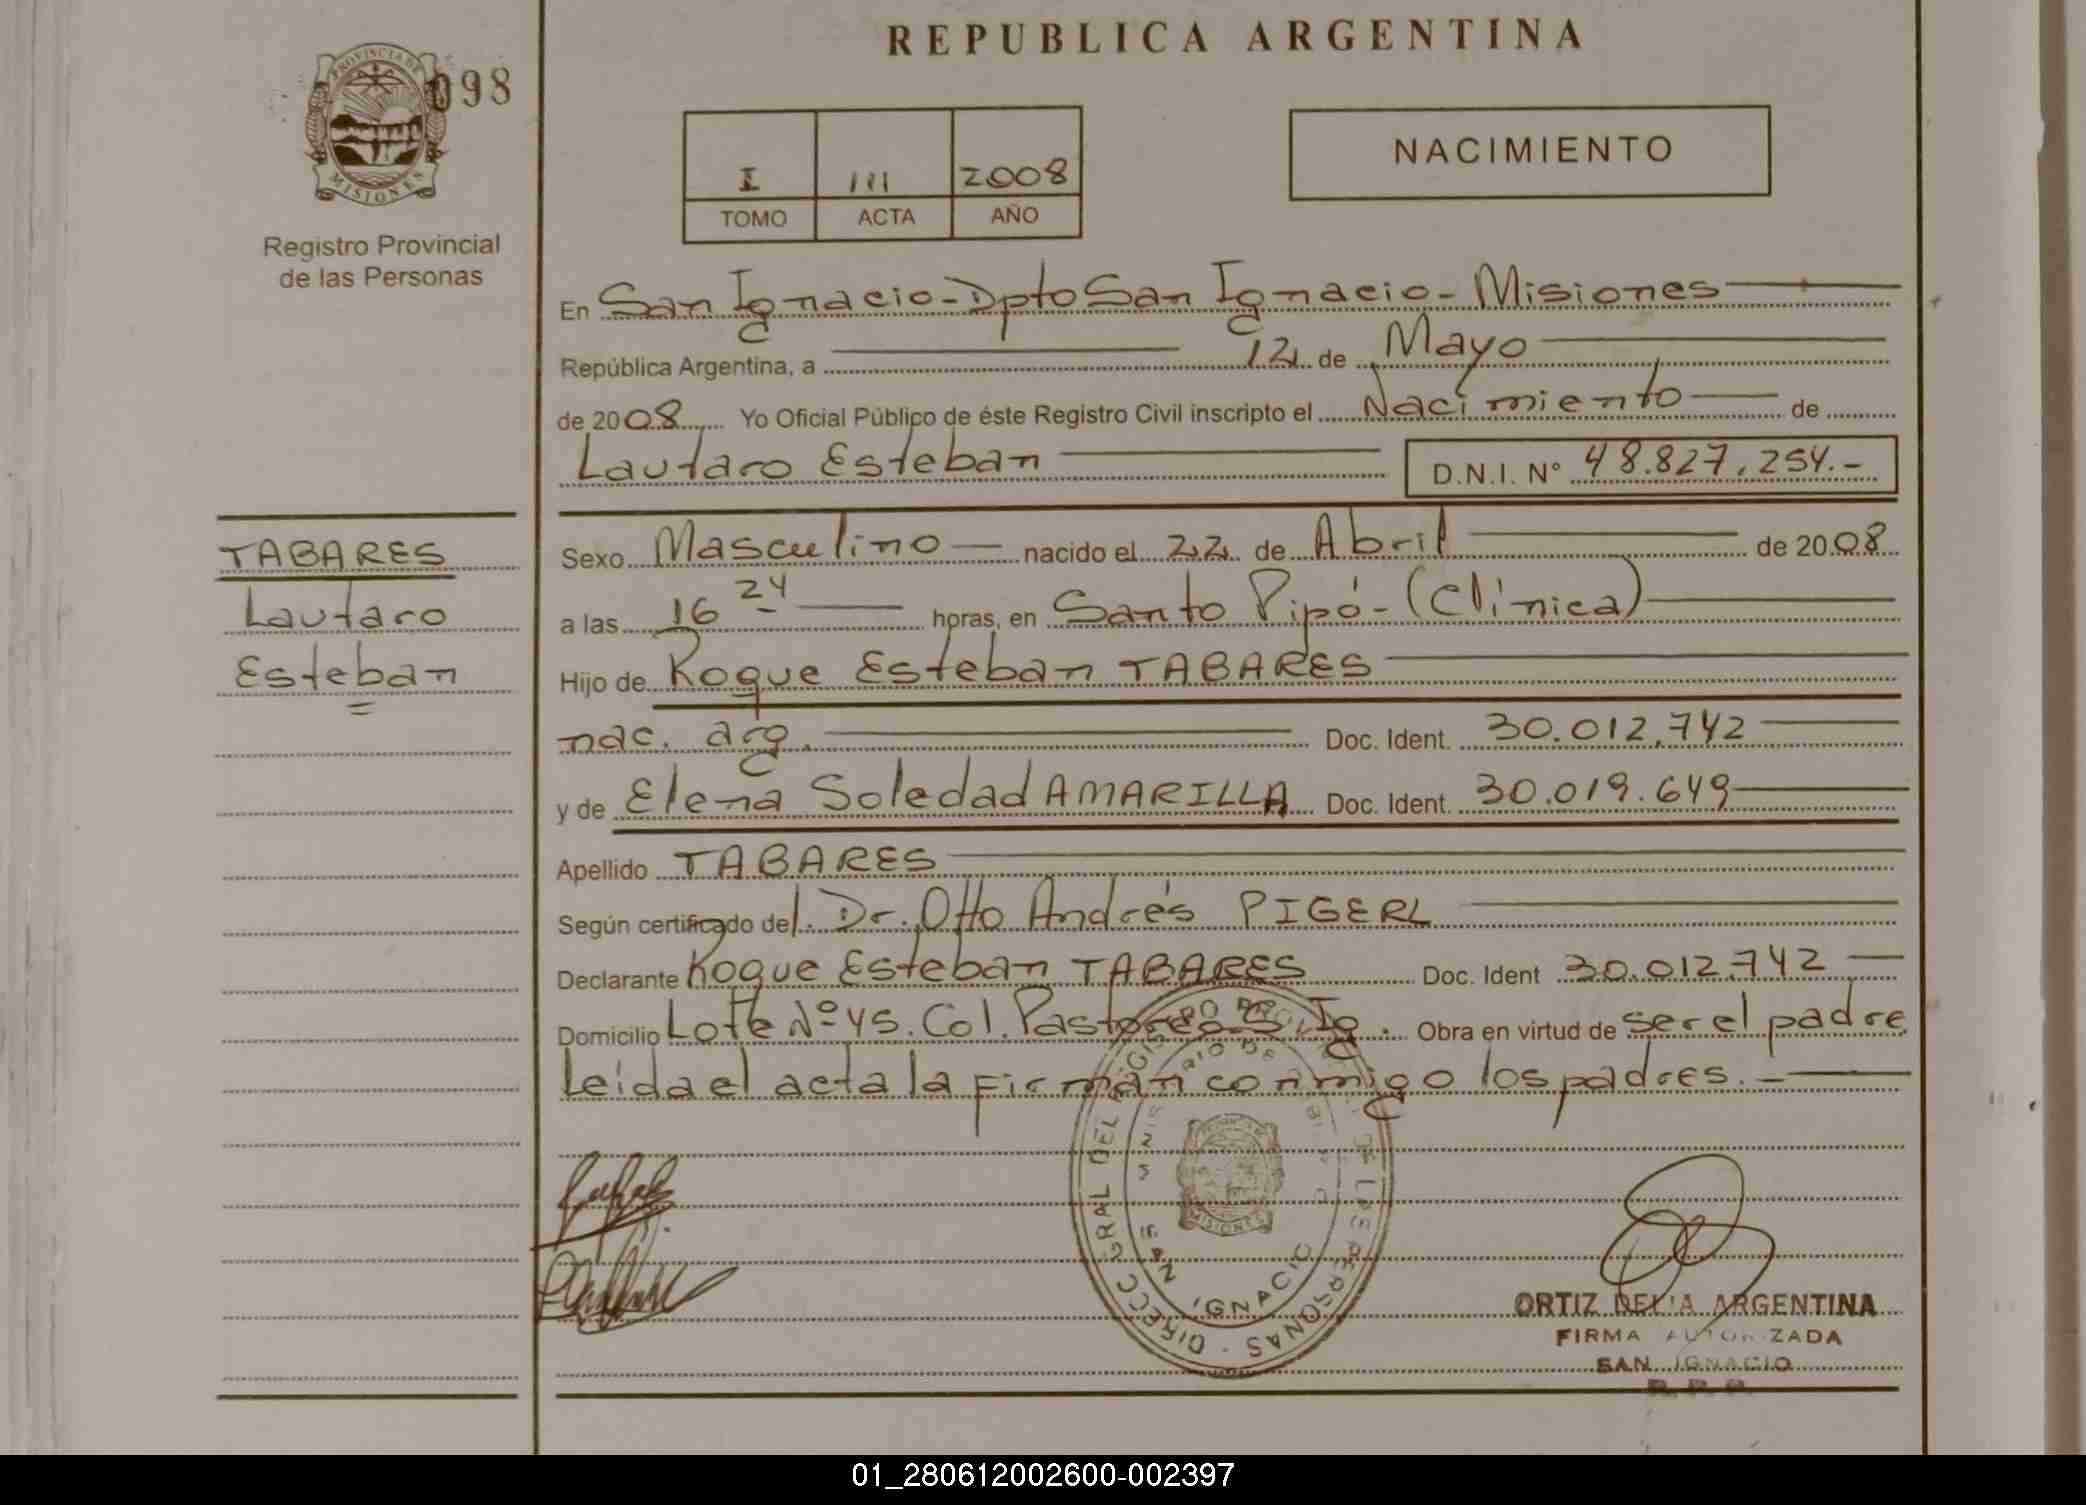 REPUBLICA ARGENTINA
PROVINCIA DE
MISIONES
098
Registro Provincial
de las Personas
I 111 2008
TOMO ACTA AÑO
NACIMIENTO
En San Ignacio - Dpto San Ignacio - Misiones
República Argentina, a 12 de Mayo
de 2008 Yo Oficial Público de éste Registro Civil inscripto el Nacimiento de
Lautaro Esteban D.N.I. Nº 48.827.254.-
TABARES
Lautaro
Esteban
Sexo Masculino nacido el 22 de Abril de 2008
a las 16 24 horas, en Santo Pipó - (Clínica)
Hijo de Roque Esteban TABARES
nac. arg. Doc. Ident. 30.012.742
y de Elena Soledad AMARILLA Doc. Ident. 30.019.649
Apellido TABARES
Según certificado del. Dr. Otto Andrés PIGERL
Declarante Roque Esteban TABARES Doc. Ident 30.012.742
Domicilio Lote Nº 45. Col. Pastoreo. S. Ig. Obra en virtud de ser el padre
Leida el acta la firman conmigo los padres. -
DIRECC. GRAL DEL
PERSONAS
IGNACIO
MISIONES
ORTIZ DELIA ARGENTINA
FIRMA AUTORIZADA
SAN IGNACIO
R. P. P.
01_280612002600-002397